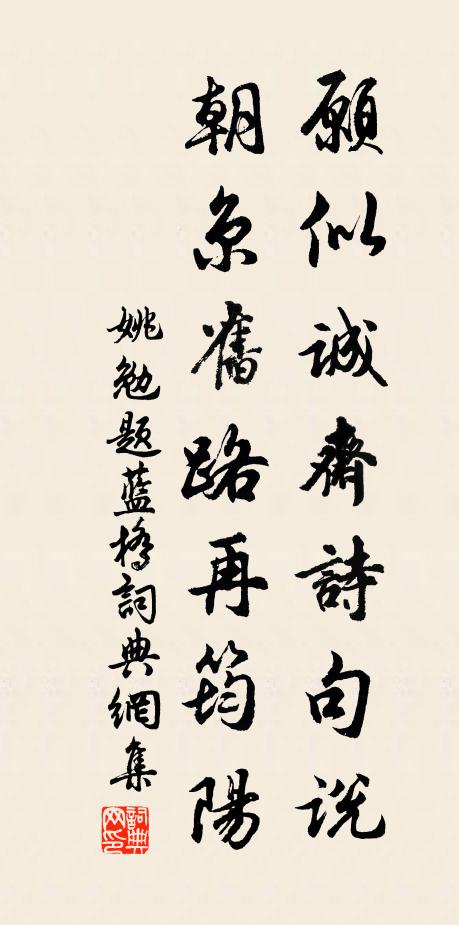 願似誠齋詩句說
朝京舊路再筠陽
姚勉題藍橋詞典網集
詞典网印